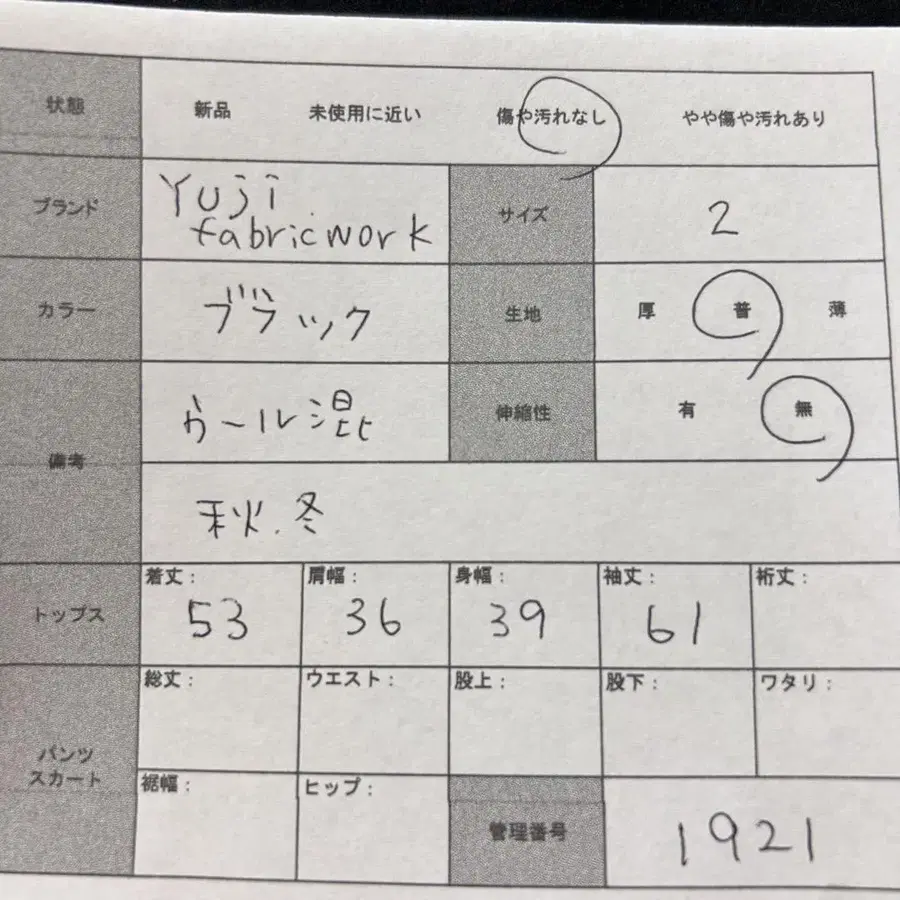 状態 新品 未使用に近い 傷や汚れなし やや傷や汚れあり
ブランド Yuji fabricwork サイズ 2
カラー ブラック 生地 厚 普 薄
備考 ウール混 伸縮性 有 無
秋.冬
トップス 着丈: 53 肩幅: 36 身幅: 39 袖丈: 61 裄丈:
パンツ スカート 総丈: ウエスト: 股上: 股下: ワタリ:
裾幅: ヒップ: 管理番号 1921